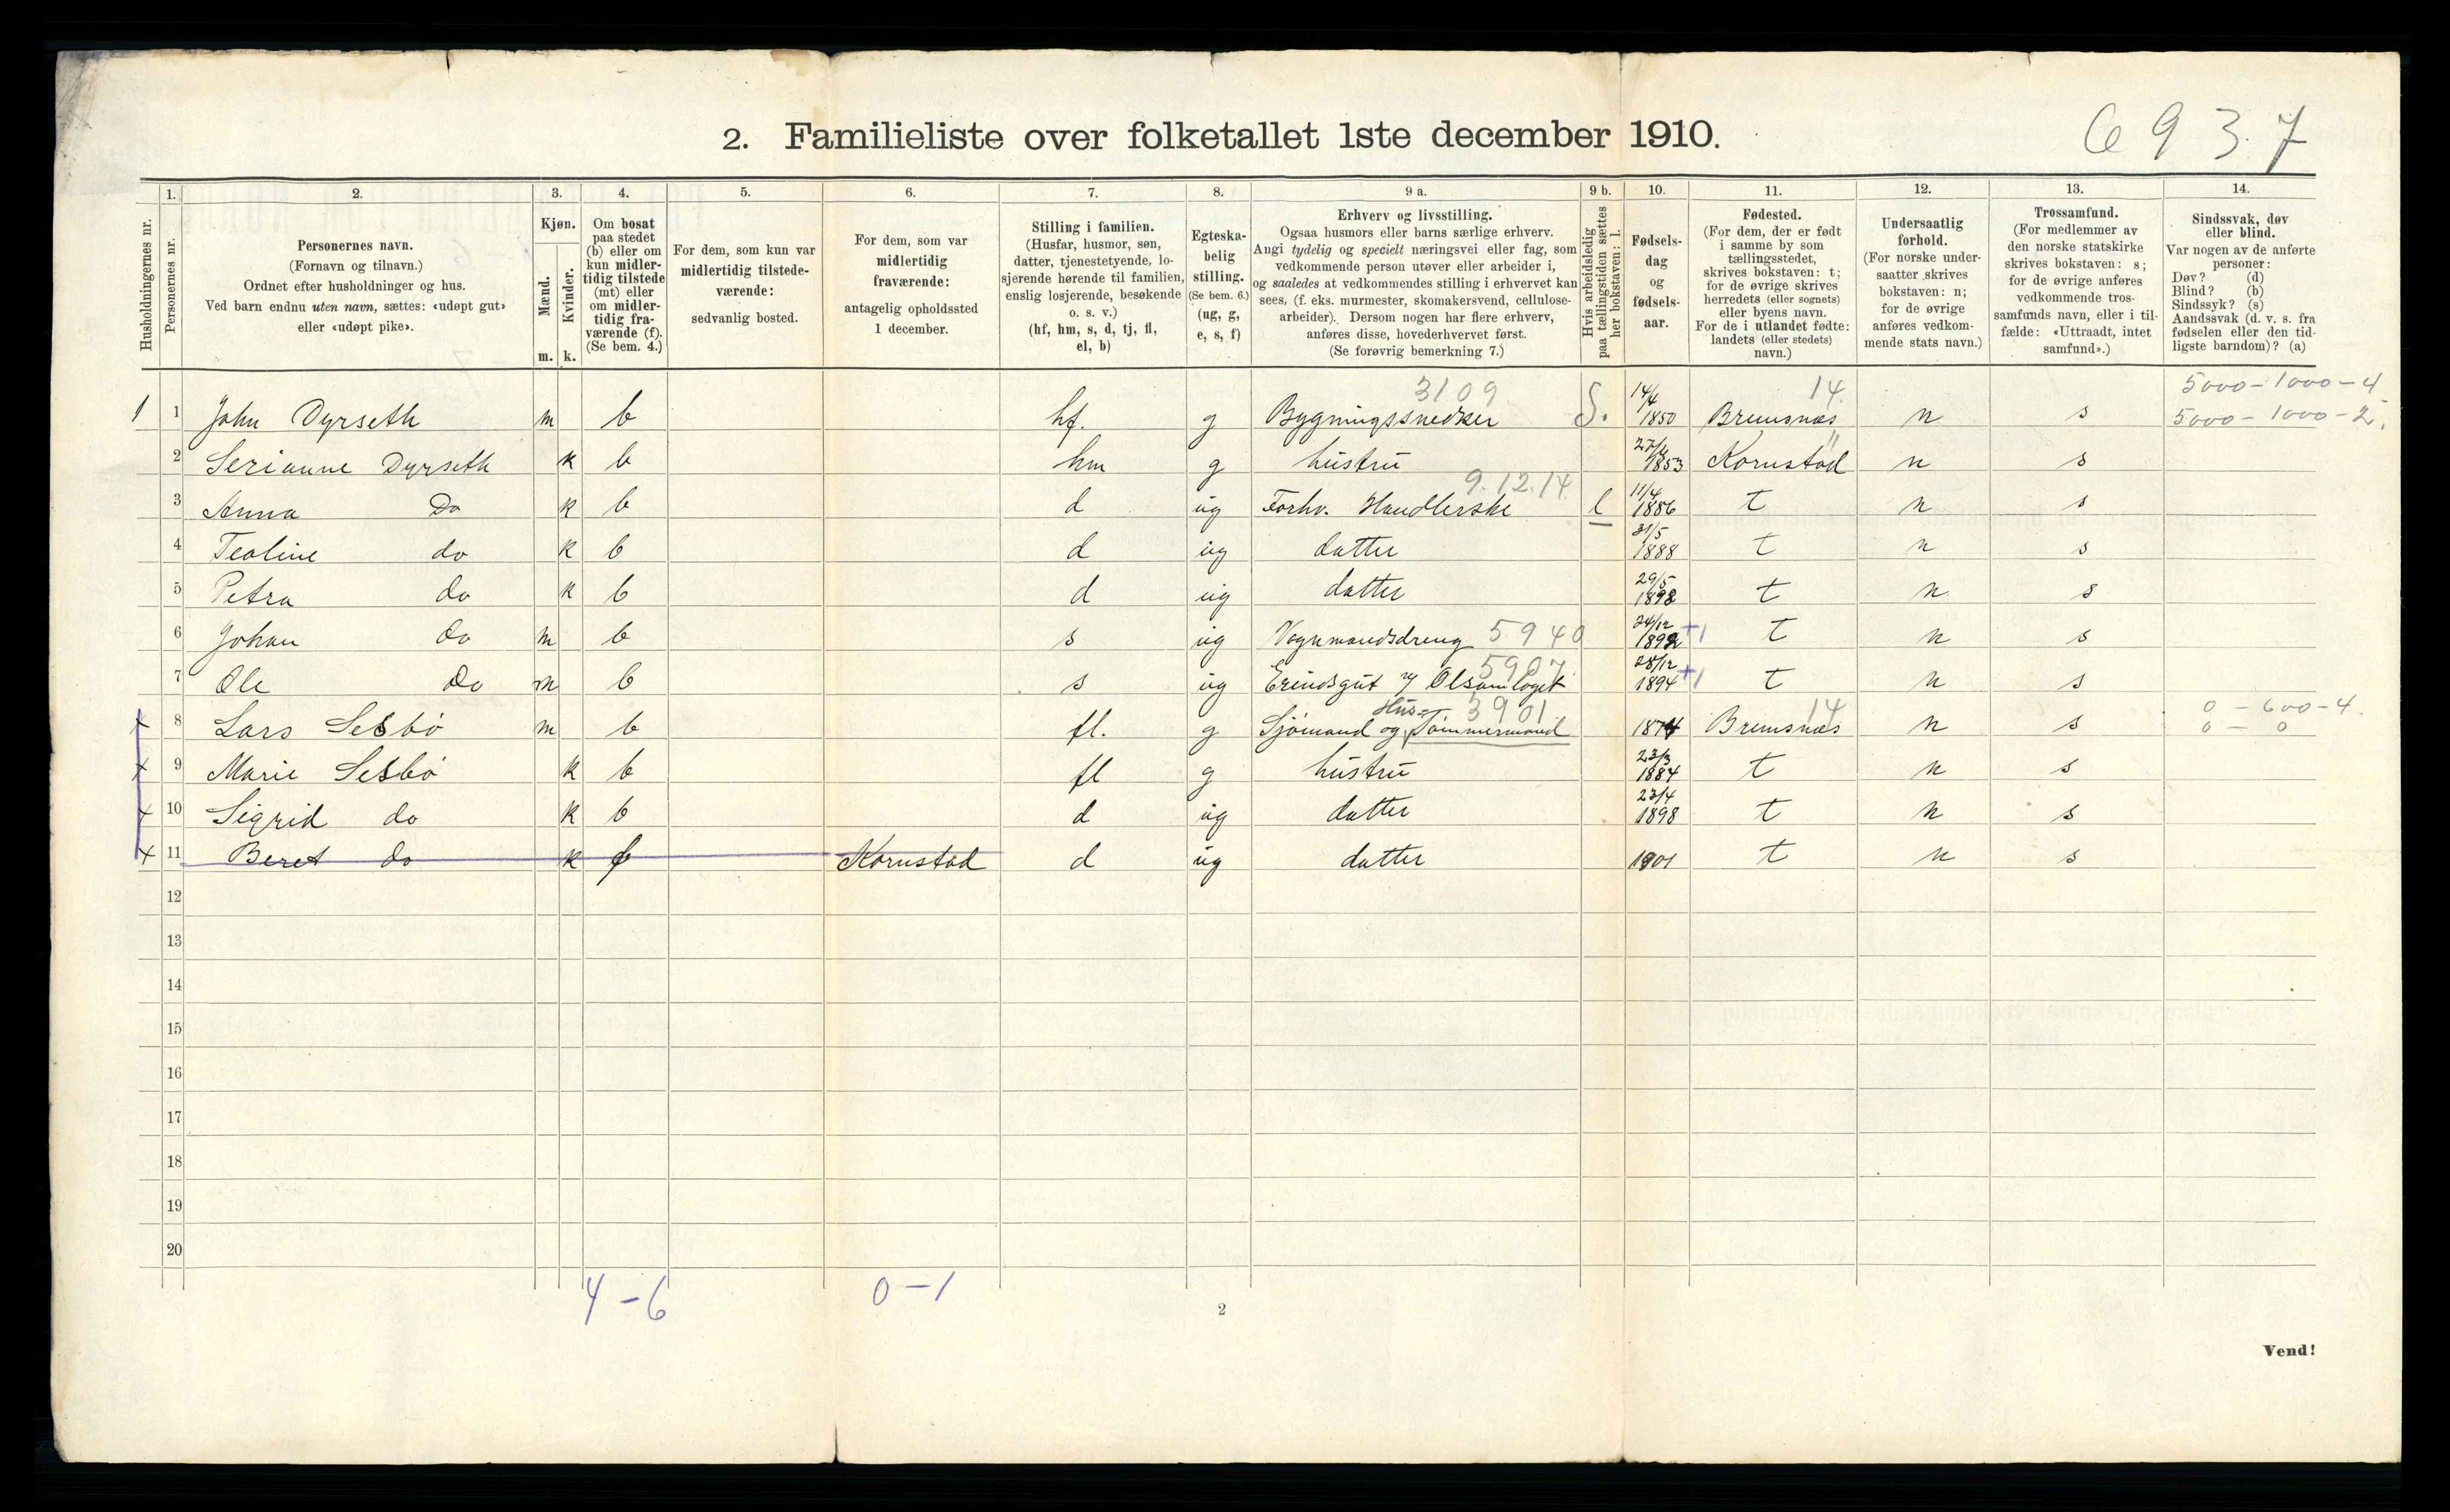 2. Familieliste over folketallet 1ste december 1910.
6937
Husholdningernes nr.
1.
Personernes nr.
2.
Personernes navn.
(Fornavn og tilnavn.)
Ordnet efter husholdninger og hus.
Ved barn endnu uten navn, sættes: «udøpt gut»
eller «udøpt pike».
3.
Kjøn.
Mænd.
Kvinder.
m. k.
4.
Om bosat
paa stedet
(b) eller om
kun midler-
tidig tilstede
(mt) eller
om midler-
tidig fra-
værende (f).
(Se bem. 4.)
5.
For dem, som kun var
midlertidig tilstede-
værende:
sedvanlig bosted.
6.
For dem, som var
midlertidig
fraværende:
antagelig opholdssted
1 december.
7.
Stilling i familien.
(Husfar, husmor, søn,
datter, tjenestetyende, lo-
sjerende hørende til familien,
enslig losjerende, besøkende
o. s. v.)
(hf, hm, s, d, tj, fl,
el, b)
8.
Egteska-
belig
stilling.
(Se bem. 6.)
(ug, g,
e, s, f)
9 a.
Erhverv og livsstilling.
Ogsaa husmors eller barns særlige erhverv.
Angi tydelig og specielt næringsvei eller fag, som
vedkommende person utøver eller arbeider i,
og saaledes at vedkommendes stilling i erhvervet kan
sees, (f. eks. murmester, skomakersvend, cellulose-
arbeider). Dersom nogen har flere erhverv,
anføres disse, hovederhvervet først.
(Se forøvrig bemerkning 7.)
9 b.
Hvis arbeidsledig
paa tællingstiden sættes
her bokstaven: l.
10.
Fødsels-
dag
og
fødsels-
aar.
11.
Fødested.
(For dem, der er født
i samme by som
tællingsstedet,
skrives bokstaven: t;
for de øvrige skrives
herredets (eller sognets)
eller byens navn.
For de i utlandet fødte:
landets (eller stedets)
navn.)
12.
Undersaatlig
forhold.
(For norske under-
saatter skrives
bokstaven: n;
for de øvrige
anføres vedkom-
mende stats navn.)
13.
Trossamfund.
(For medlemmer av
den norske statskirke
skrives bokstaven: s;
for de øvrige anføres
vedkommende tros-
samfunds navn, eller i til-
fælde: «Uttraadt, intet
samfund».)
14.
Sindssvak, døv
eller blind.
Var nogen av de anførte
personer:
Døv? (d)
Blind? (b)
Sindssyk? (s)
Aandssvak (d. v. s. fra
fødselen eller den tid-
ligste barndom)? (a)
3109 14 5000-1000-4
1 1 John Dyrseth m b hf. g Bygningssnedker S. 14/4 1850 Bremsnæs n s 5000-1000-2.
2 Serianne Dyrseth k b hm g hustru 27/4 1853 Kornstad n s
9.12.14
3 Anna Do k b d ug Forhv. Handlerske l 11/4 1886 t n s
4 Teoline do k b d ug datter 31/5 1888 t n s
5 Petra do k b d ug datter 29/5 1892 t n s
6 Johan do m b s ug Vognmandsdreng 5940 24/12 1892 +1 t n s
5907
7 Ole Do m b s ug Erindsgut v/ Ølsamlaget 28/12 1894 +1 t n s
Hus= 3901 14 0-600-4
x 8 Lars Sesbø m b fl. g Sjömand og Tømmermand 1874 Bremsnæs n s 0-0
x 9 Marie Sesbø k b fl g hustru 23/3 1884 t n s
x 10 Sigrid do k b d ug datter 23/4 1898 t n s
x 11 Beret do k f Kornstad d ug datter 1901 t n s
12
13
14
15
16
17
18
19
20
4-6 0-1
2
Vend!